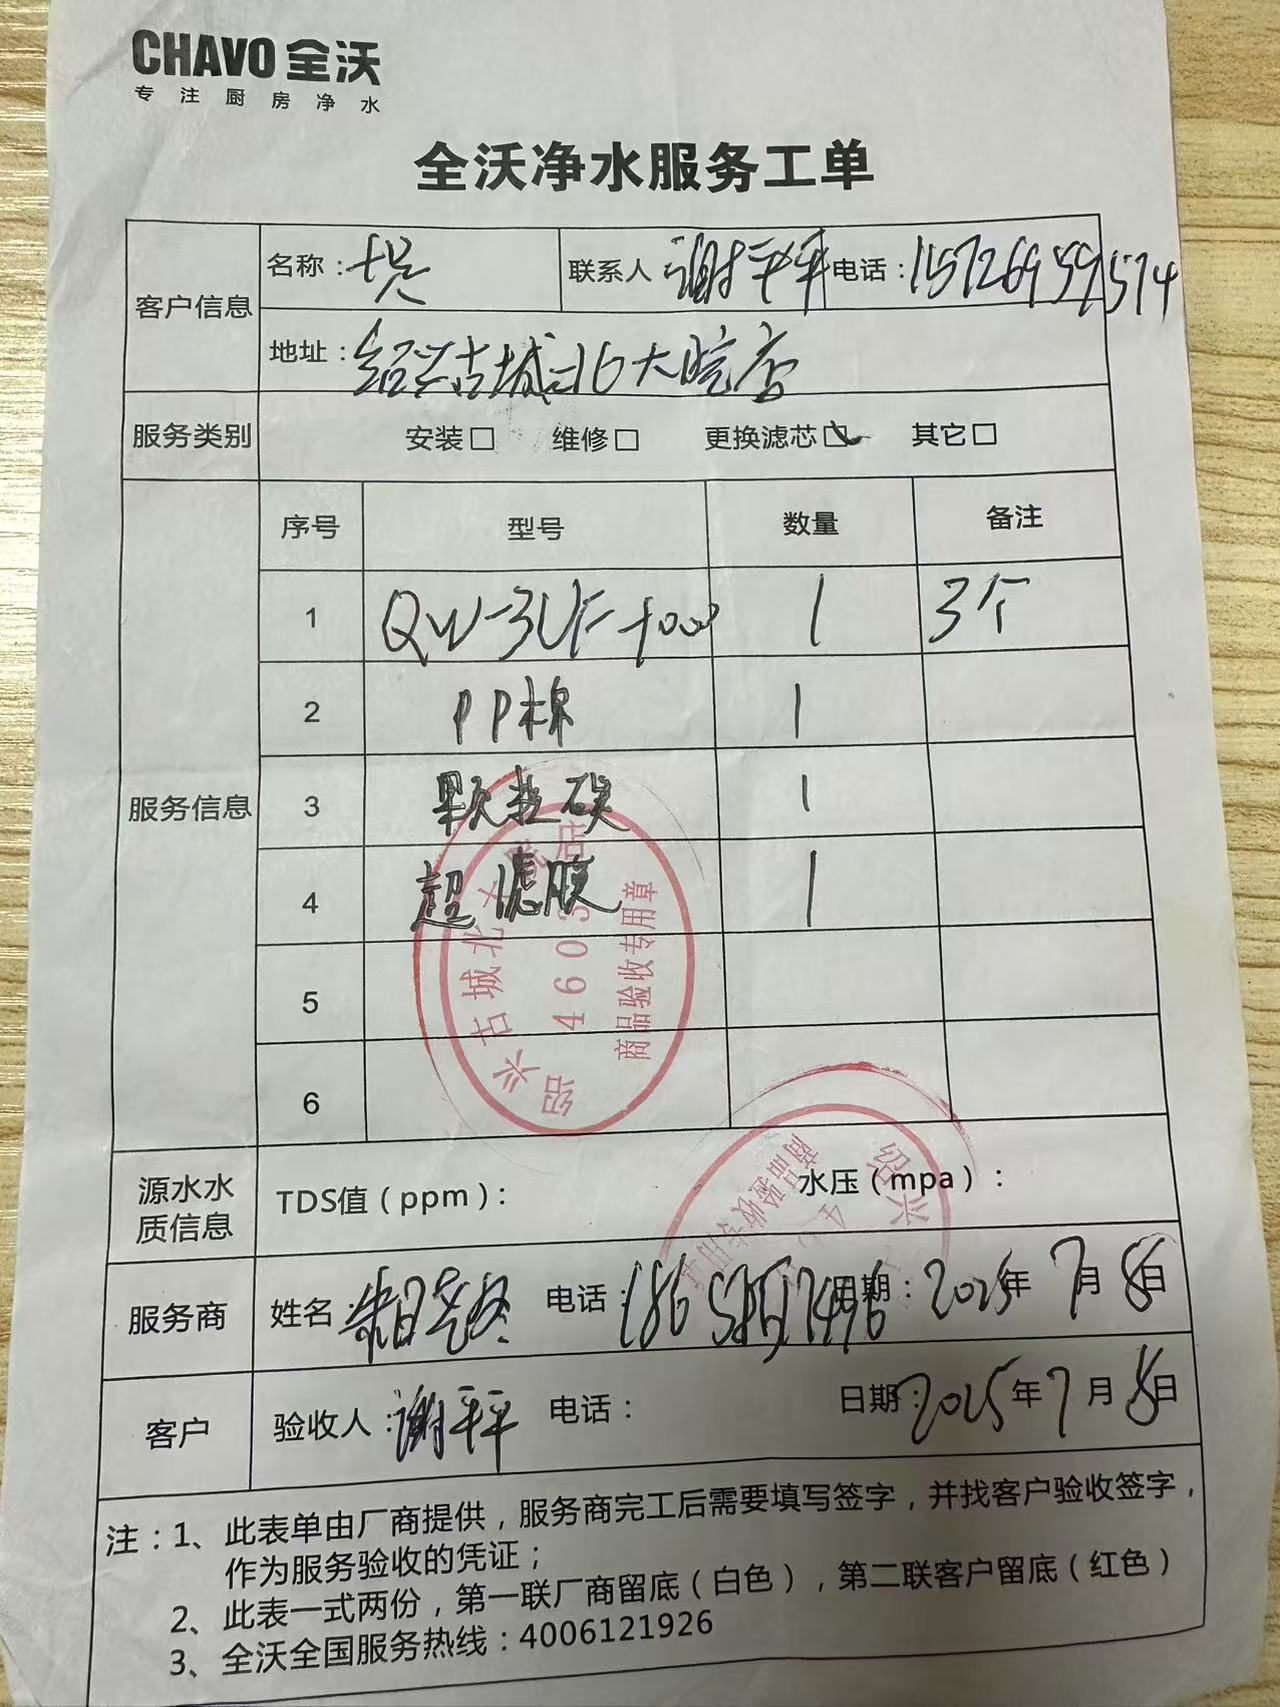 CHAVO 全沃
专注厨房净水
全沃净水服务工单
客户信息
名称：
联系人 谢平平 电话：15726959574
地址：绍兴古城北大院店
服务类别
安装□ 维修□ 更换滤芯☑ 其它□
服务信息
序号 型号 数量 备注
1 QW-3UF-1000 1 3个
2 PP棉 1
3 颗粒碳 1
4 超滤膜 1
5
6
绍兴古城北大院店
4603
商品验收专用章
源水水质信息
TDS值（ppm）： 水压（mpa）：
绍兴
商品验收专用章
服务商
姓名： 电话： 日期：2025年7月8日
客户
验收人：谢平平 电话： 日期：2025年7月8日
注：1、此表单由厂商提供，服务商完工后需要填写签字，并找客户验收签字，
作为服务验收的凭证；
2、此表一式两份，第一联厂商留底（白色），第二联客户留底（红色）
3、全沃全国服务热线：4006121926